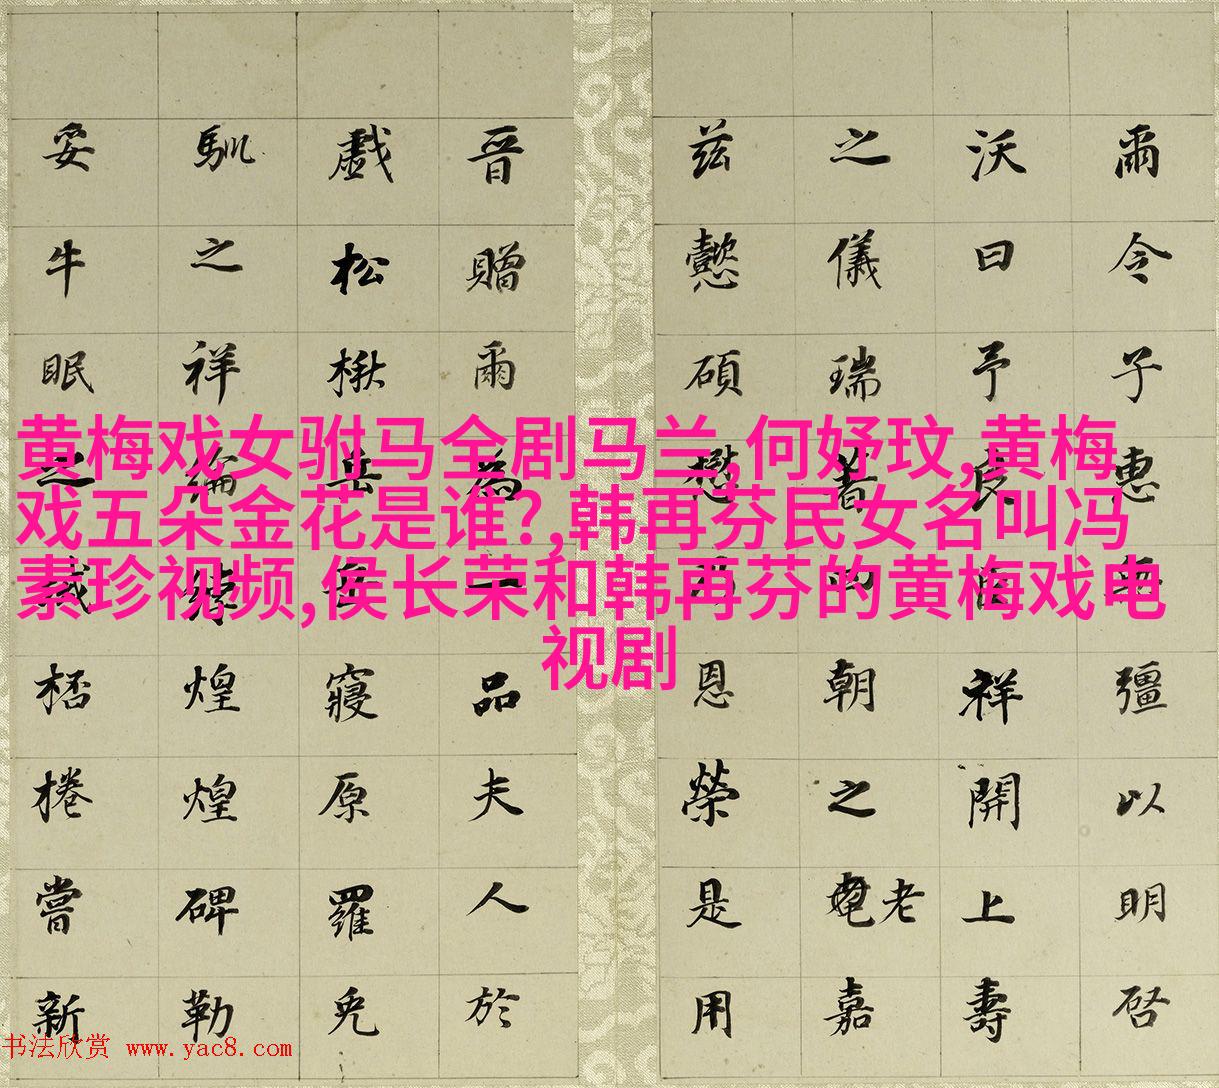 爾令子惠彊以明啓
沃曰予良祥開上壽
之儀瑞著四朝之老嘉
茲懿碩懋乃恩榮是用
晉贈爾為一品夫人於
戲松楸岳岳寢原羅
馴之祥綸綍煌煌碑勒
妥牛眠之桮棬嘗新
黄梅戏女驸马全剧马兰,何妤玟,黄梅
戏五朵金花是谁?,韩再芬民女名叫冯
素珍视频,侯长荣和韩再芬的黄梅戏电
视剧
书法欣赏 www.yac8.com